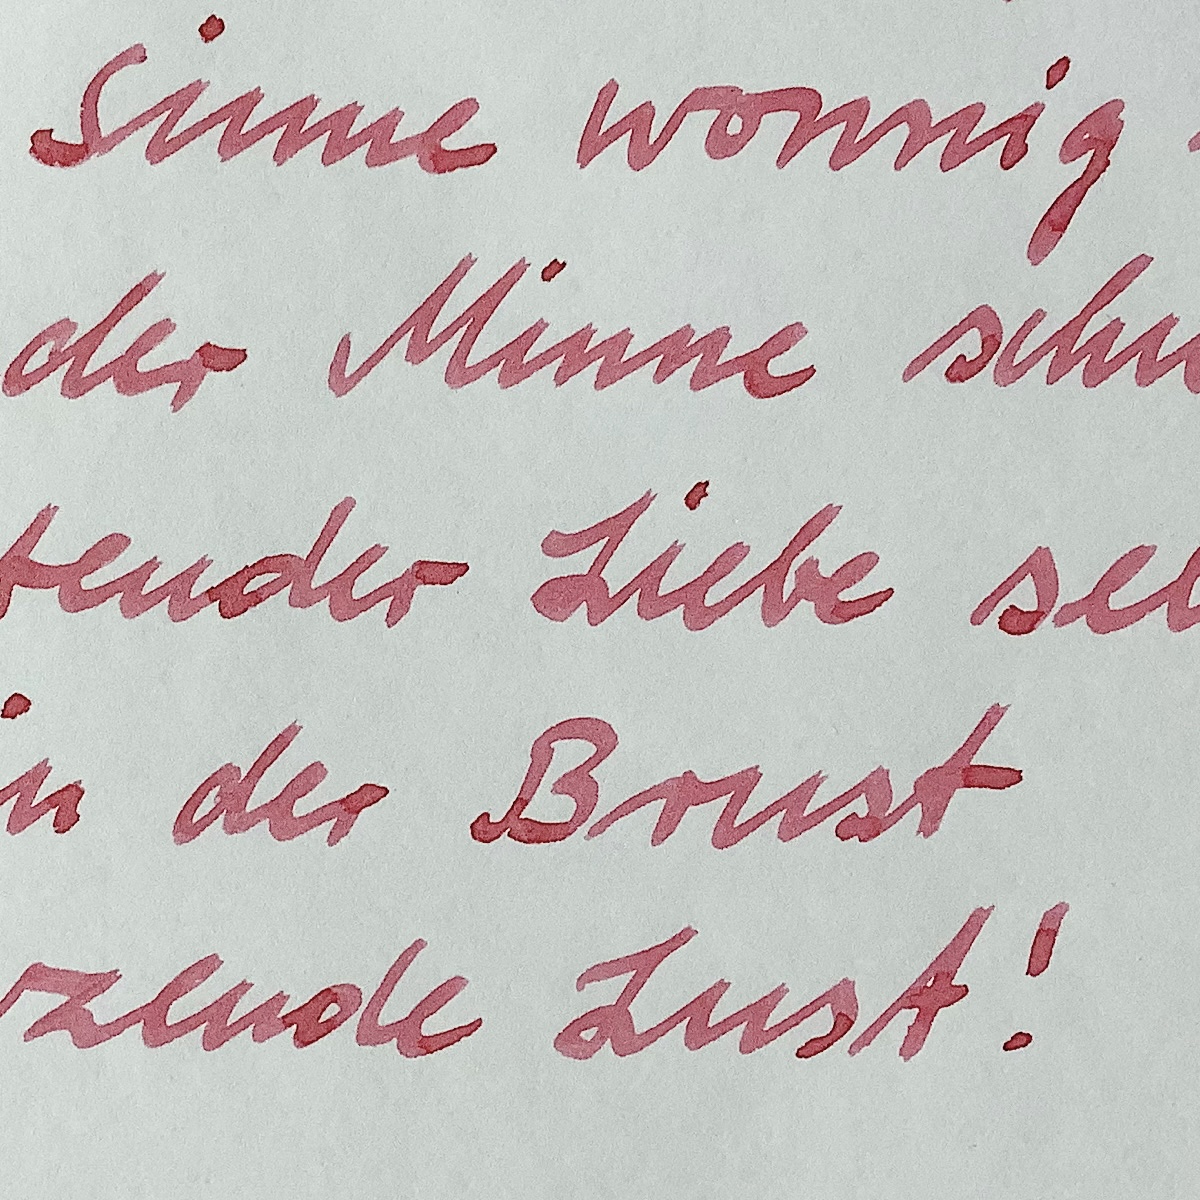 Sinne wonnig
der Minne schw
tender Liebe sel
in der Brust
zende Lust!